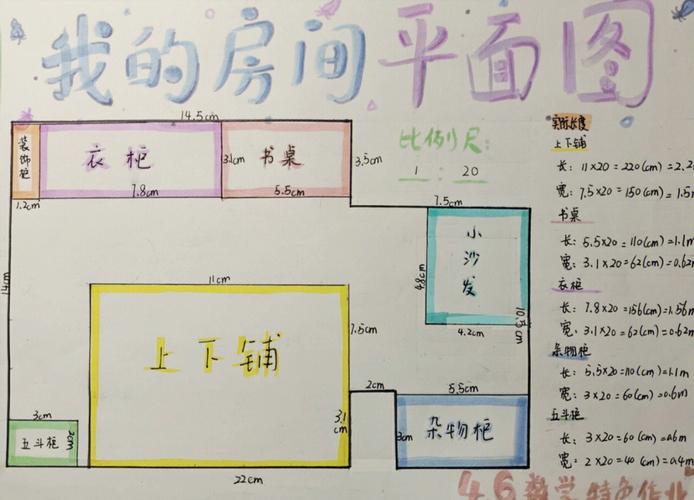 我的房间平面图
14.5cm
装饰柜
衣柜
3.1cm
书桌
3.5cm
7.8cm
5.5cm
1.2cm
比例尺:
1 : 20
7.5cm
小沙发
4.8cm
4.2cm
10.5cm
14cm
11cm
上下铺
7.5cm
3.1cm
2cm
5.5cm
3cm
杂物柜
3cm
五斗柜
2cm
22cm
实际长度
上下铺
长: 11×20=220(cm)=2.2
宽: 7.5×20=150(cm)=1.5
书桌
长: 5.5×20=110(cm)=1.1m
宽: 3.1×20=62(cm)=0.62
衣柜
长: 7.8×20=156(cm)=1.56m
宽: 3.1×20=62(cm)=0.62m
杂物柜
长: 5.5×20=110(cm)=1.1m
宽: 3×20=60(cm)=0.6m
五斗柜
长: 3×20=60(cm)=0.6m
宽: 2×20=40(cm)=0.4m
4.6数学特色作业